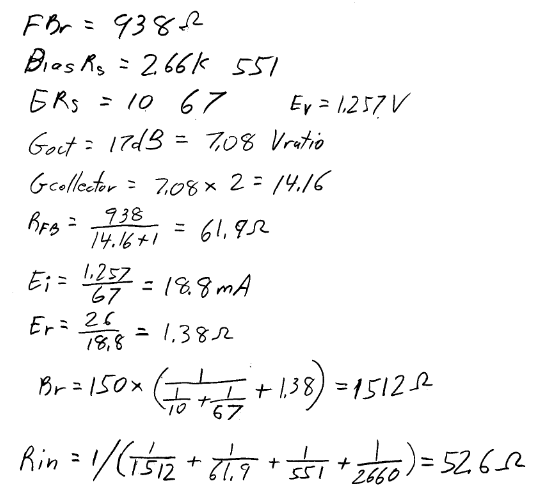 FBr = 938Ω
Bias Rs = 2.66k 551
ERs = 10 67 Ev = 1.257V
Gout = 17dB = 7.08 Vratio
Gcollector = 7.08 × 2 = 14.16
RFB = 938/(14.16+1) = 61.9Ω
Ei = 1.257/67 = 18.8mA
Er = 26/18.8 = 1.38Ω
Br = 150 × (1/(1/10 + 1/67) + 1.38) = 1512Ω
Rin = 1/(1/1512 + 1/61.9 + 1/551 + 1/2660) = 52.6Ω